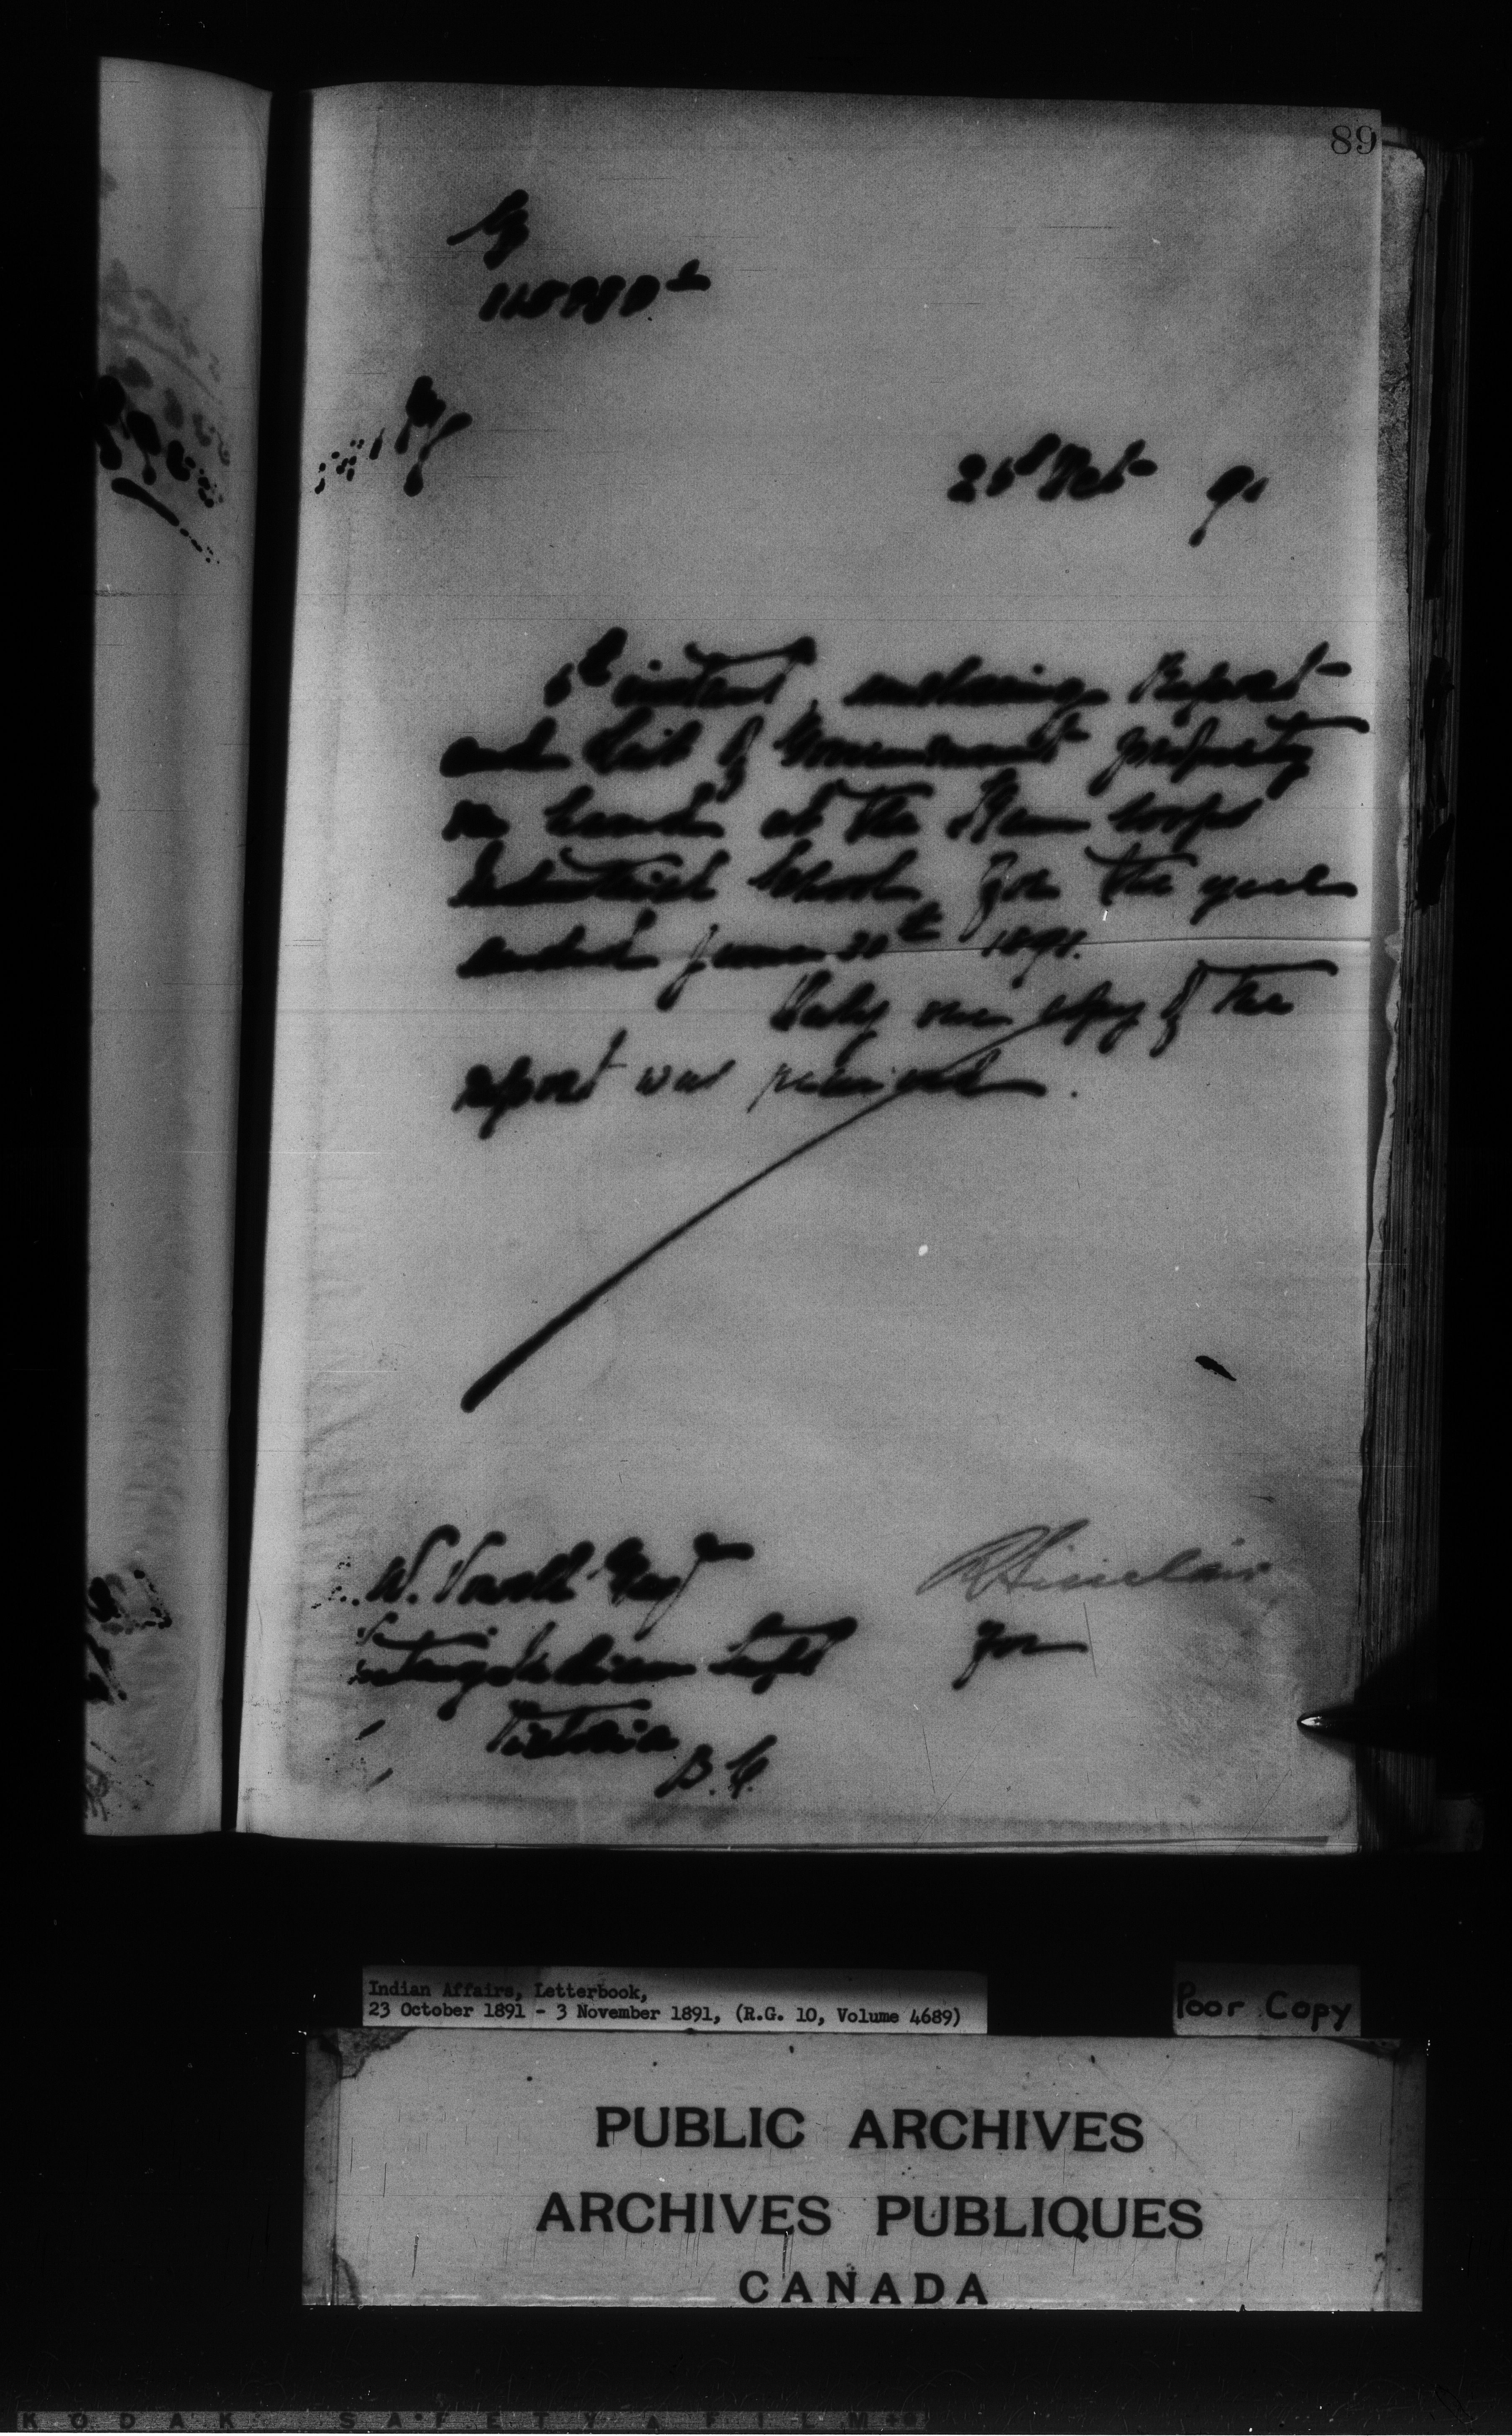 89
6th instant, enclosing Report
and List of Government property
on hand at the Kamloops
Industrial School for the year
ended June 30th 1891.
Only one copy of the
report was received.
W. Vowell Esq
RSinclair
Indian Supt
for
Victoria
B.C.
Indian Affairs, Letterbook,
23 October 1891 - 3 November 1891, (R.G. 10, Volume 4689)
Poor Copy
PUBLIC ARCHIVES
ARCHIVES PUBLIQUES
CANADA
KODAK SAFETY FILM